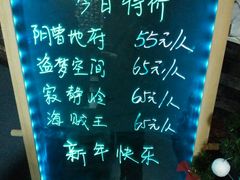 今日特价
阴曹地府 55元/人
盗梦空间 65元/人
寂静岭 65元/人
海贼王 65元/人
新年快乐